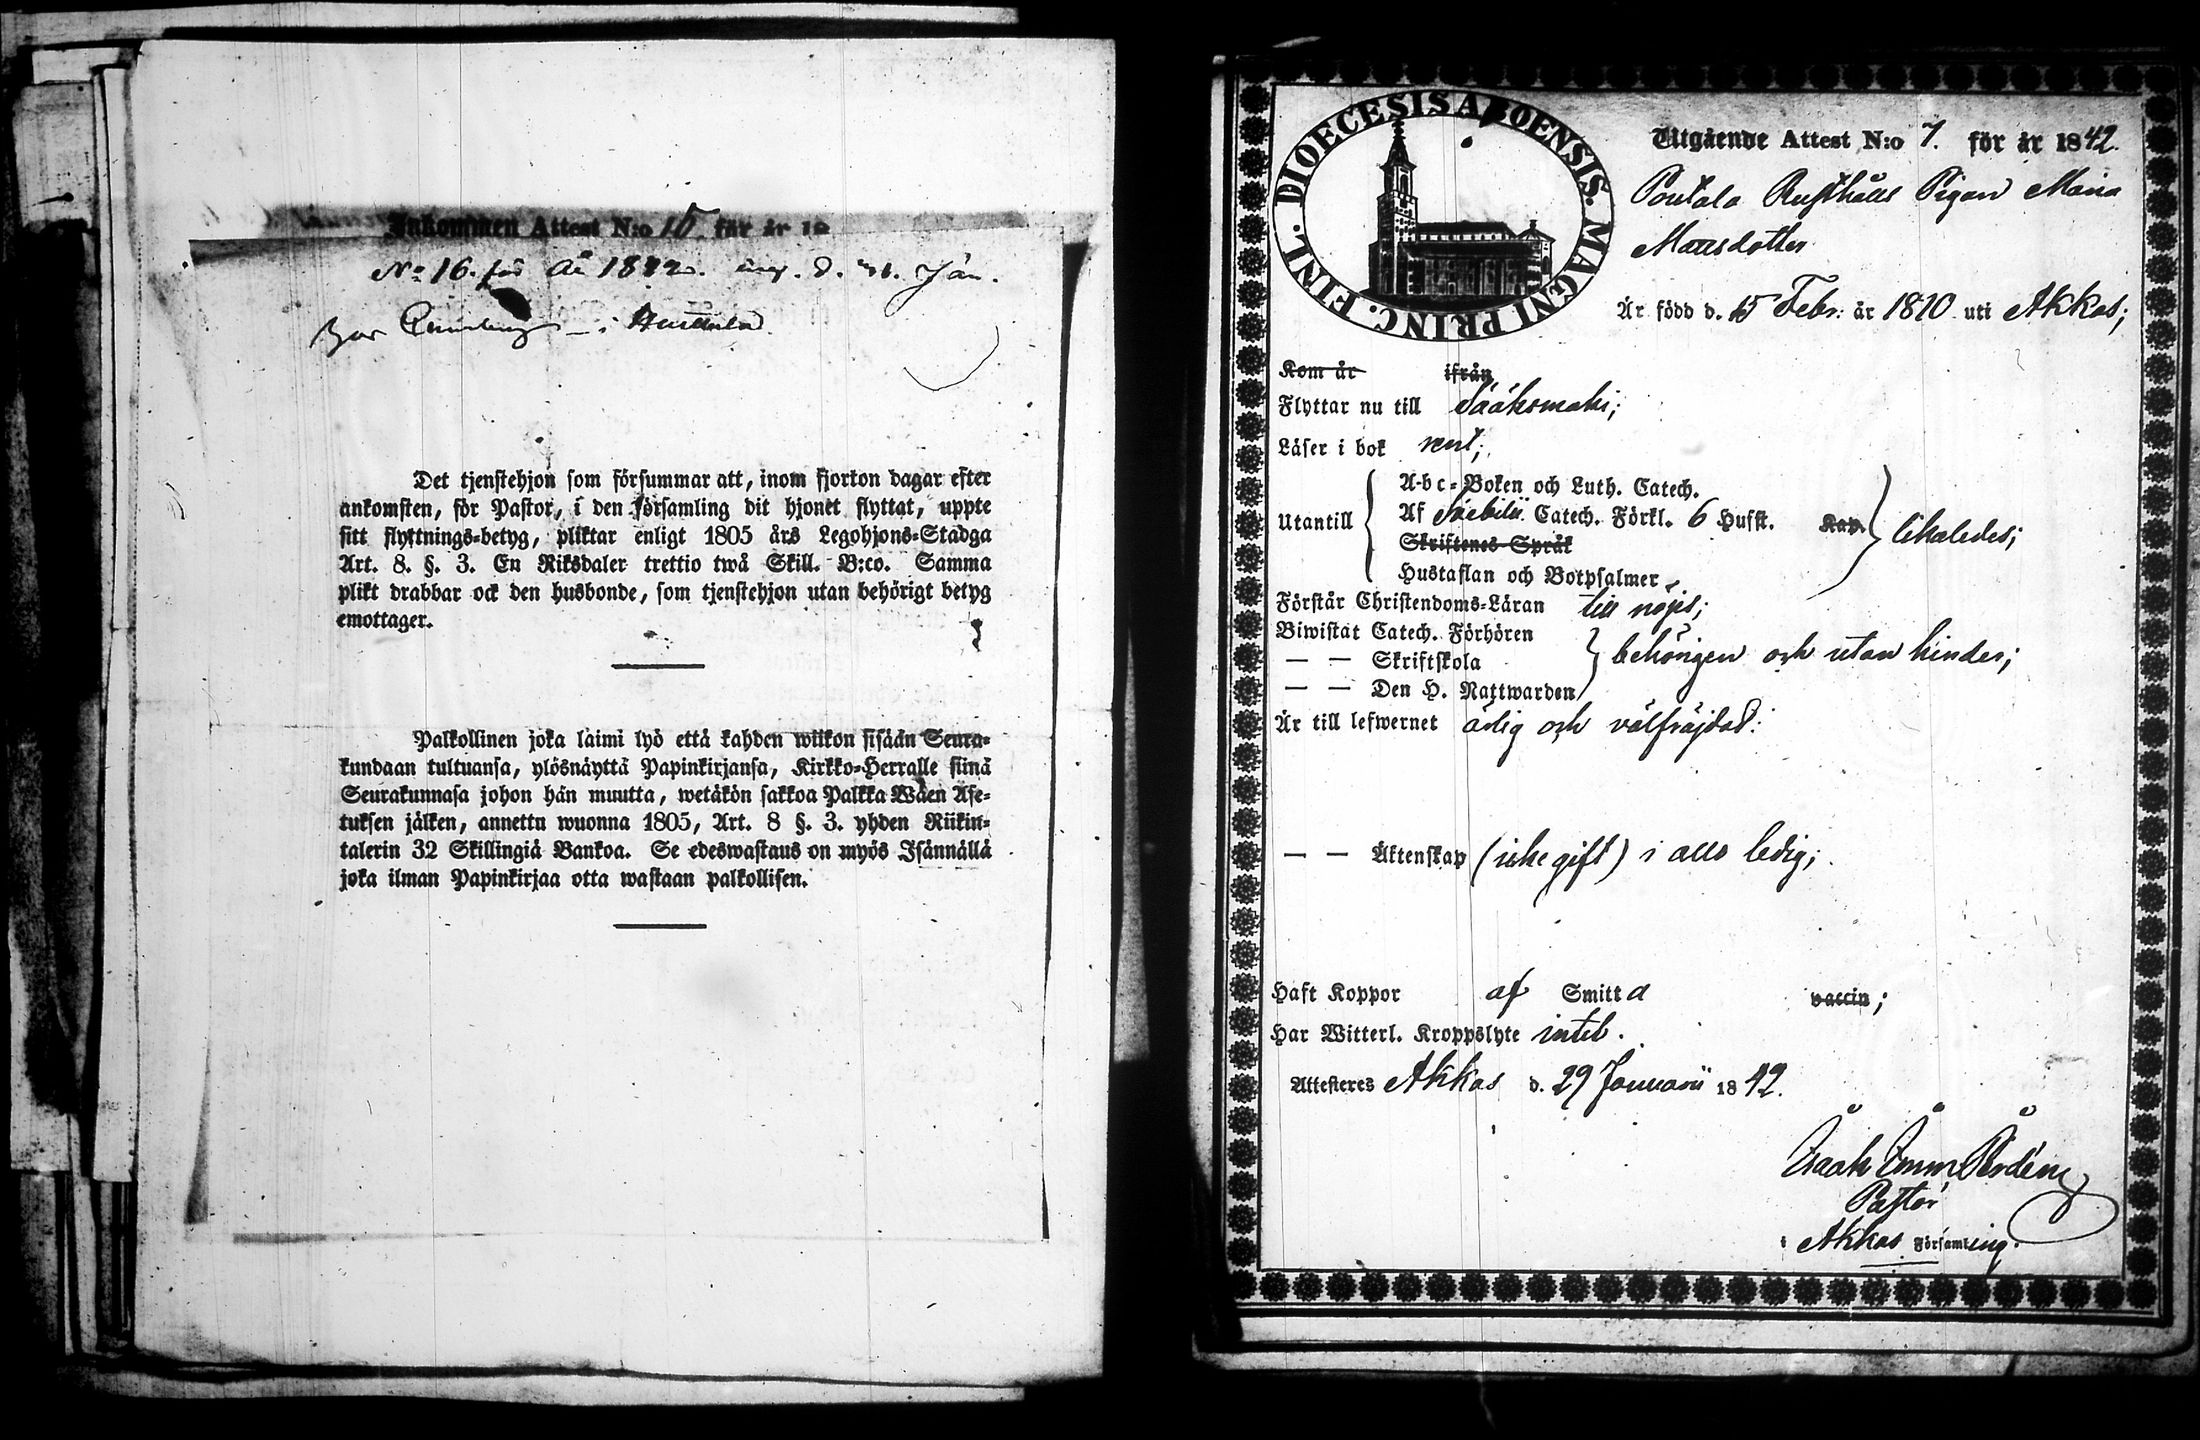 Inkommen Attest N:o 15 för år 18
No 16. för År 1842. d. 31. Jan.
i
Det tjenstehjon som försummar att, inom fjorton dagar efter
ankomsten, för Pastor, i den församling dit hjonet flyttat, uppte
sitt flyttnings-betyg, pliktar enligt 1805 års Legohjons-Stadga
Art. 8. §. 3. En Riksdaler trettio twå Skill. B:co. Samma
plikt drabbar ock den husbonde, som tjenstehjon utan behörigt betyg
emottager.
Palkollinen joka laimi lyö että kahden wiikon sisään Seura-
kundaan tultuansa, ylösnäyttä Papinkirjansa, Kirkko-Herralle siinä
Seurakunnasa johon hän muutta, wetäkön sakkoa Palkka Wäen Ase-
tuksen jälken, annettu wuonna 1805, Art. 8 §. 3. yhden Riikin-
talerin 32 Skillingiä Bankoa. Se edeswastaus on myös Isännällä
joka ilman Papinkirjaa otta wastaan palkollisen.
DIOECESIS ABOENSIS. MAGNI PRINC. FINL.
Utgående Attest N:o 7. för år 1842.
Pontala Rusthålls Pigan Maria
Mattsdotter
Är född d. 15 Febr: år 1820 uti Akkas;
Kom år ifrån
Flyttar nu till Sääksmäki;
Läser i bok rent;
A-b c-Boken och Luth. Catech.
Utantill Af Svebilii Catech. Förkl. 6 Hufst. Kap. likaledes;
Skriftenes Språk
Hustaflan och Botpsalmer
Förstår Christendoms-Läran till nöjes;
Biwistat Catech. Förhören
— — Skriftskola behörigen och utan hinder;
— — Den H. Nattwarden
Är till lefwernet ärlig och välfräjdad:
— — Äktenskap (icke gift) i allo ledig;
Haft Koppor af Smitta vaccin;
Har Witterl. Kroppslyte intet.
Attesteres Akkas d. 29 Januarii 1842.
Isaak Emm.
Pastor
i Akkas Församling.